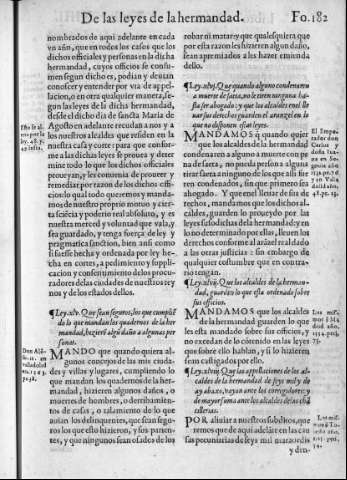 De las leyes de la hermandad. Fo. 182
nombrados de aqui adelante en cada
vn año, que en todos los casos que los
dichos officiales y personas en la dicha
hermandad, cuyos officios se consu-
men segun dicho es, podian y deuian
conoscer y entender por via de app-
lacion, o en otra qualquier manera, se-
gun las leyes de la dicha hermandad,
desde el dicho dia de sancta Maria de
Agosto en adelante recudan a nos y a
los nuestros alcaldes que residen en la
nuestra casa y corte: para que confor-
me a las dichas leyes de prouea y deter
mine todo lo que los dichos officiales
proueyan, y les conuenia de proueer y
remediar por razon de los dichos offi-
cios: lo qual todo queremos y manda-
mos de nuestro proprio motuo y cier-
ta sciēcia y poderio real absoluto, y es
nuestra merced y voluntad que vala, y
sea guardado, y tenga fuerça de ley y
pragmatica sanction, bien ansi como
si fuesse hecha y ordenada por ley he-
cha en cortes, a pedimiento y suppli-
cacion y consentimiento de los procu-
radores de las ciudades de nuestros rey
nos y de los estados dellos.
¶ Ley .xlv. Que sean seguros, los que cumpliē
de lo que mandan los quadernos de la her
mandad, hazierē algū daño a algunas per
sonas.
MANDO que quando quier al-
gunos concejos de las mis ciuda-
des y villas y lugares, cumpliendo lo
que mandan los quadernos de la her-
mandad, hizieren algunos daños, o
muertes de hombres, o derribamien-
tos de casas, o talamiento de lo que
auian los delinquentes, que sean segu-
ros los que esto hizieren, y sus parien-
tes, y que ningunos sean osados de los
robar ni matar y que qualesquiera que
por esta razon les hizieren algun daño,
sean apremiados a les hazer emienda
dello.
¶ Ley .xlvj. Que quando alguno condenaren
a muerte de saeta, no le tiren ninguna ha-
sta ser ahogado: y que los alcaldes en el lle
uar sus derechos guarden el aranzel en lo
que no disponen estas leyes.
MANDAMOS q̄ quando quier
que los alcaldes de la hermandad
condenaren a alguno a muerte con pe
na de saeta, no pueda persona alguna
tirar saeta a ninguno de los que assi fue
ren condenados, sin que primero sea
ahogado. Y que en el lleuar de sus de-
rechos, mandamos que los dichos al-
caldes, guarden lo proueydo por las
leyes susodichas de la hermandad: y en
lo no determinado por ellas, lleuen los
derechos conforme al arāzel real dado
a las otras justicias: sin embargo de
qualquier costumbre que en contra-
rio tengan.
¶ Ley .xlvij. Que los alcaldes de la herman-
dad, guarden lo que esta ordenado sobre
sus officios.
MANDAMOS que los alcaldes
de la hermandad guarden lo que
les esta mandado sobre sus officios, y
no excedan de lo cōtenido en las leyes
que sobre ello hablan, y si lo hizieren
sean castigados por ello.
¶ Ley .xlviij. Que las appellaciones de los al-
caldes de la hermandad de seys mil y de
ay abaxo, vayan ante los corregidores: y
de mayor suma ante los alcaldes de las chā
cillerias.
POR aliuiar a nuestros subditos, que
remos que de aqui adelāte en las cau
sas pecuniarias de seys mil marauedis
y den-